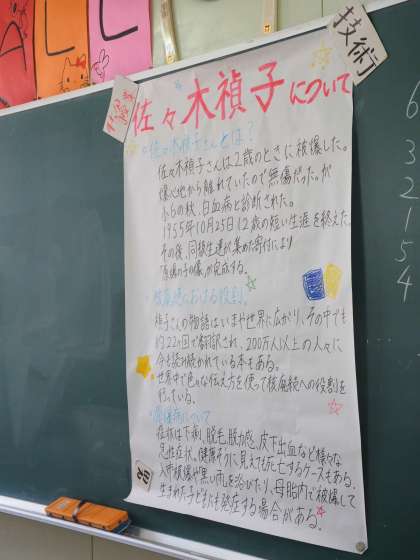 ALL
技術
佐々木禎子について
佐々木禎子さんとは?
佐々木禎子さんは2歳のときに被爆した。
爆心地から離れていたので無傷だった。が
小6の秋、白血病と診断された。
1955年10月25日12歳の短い生涯を終えた。
その後、同級生達が集めた寄付により
「原爆の子の像」が完成する。
核廃絶における役割。
禎子さんの物語はいまや世界に広がり、その中でも
約22カ国で翻訳され、200万人以上の人々に
今も読み続かれている本もある。
世界中で色々な伝え方を使って核廃絶への役割を
行っている。
原爆病について
症状は下痢、脱毛、脱力感、皮下出血など様々な
急性症状、健康そうに見えても死亡するケースもある。
入市被爆や黒い雨を浴びたり、母胎内で被爆して
生まれた子どもにも発症する場合がある。
6
3
2
1
5
4